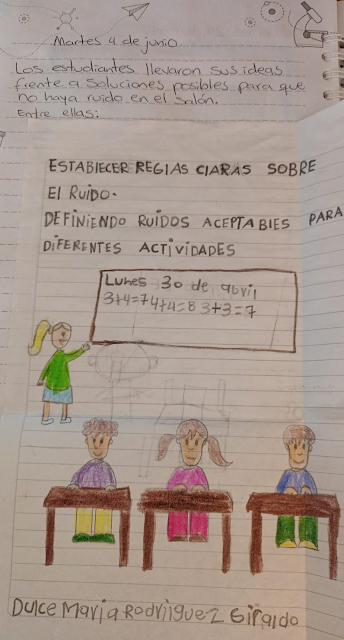 Martes 4 de junio
Los estudiantes llevaron sus ideas
frente a soluciones posibles para que
no haya ruido en el salón.
Entre ellas:
ESTABlECER REGlAS ClARAS SOBRE
El RUiDO.
DEFiNiENDO RUiDOS ACEPTABlES PARA
DiFERENTES ACTiViDADES
Lunes 30 de abril
3+4=7 4+4=8 3+3=7
Dulce Maria Rodriiguez Giraldo